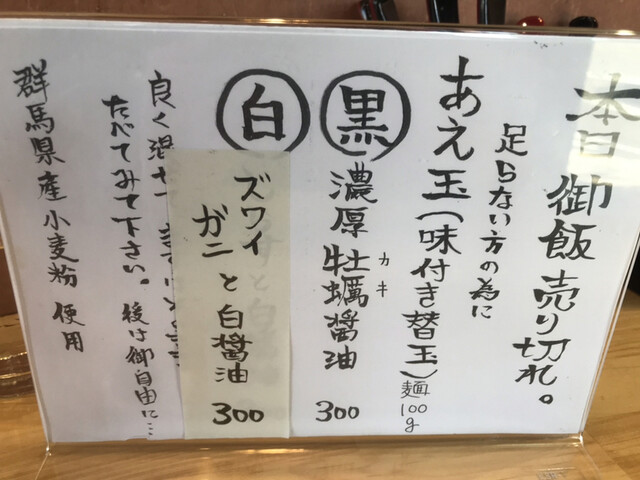 本日御飯売り切れ。
足らない方の為に
あえ玉(味付き替玉)麺100g
黒 濃厚牡蠣醤油 300
カキ
白 ズワイガニと白醤油 300
良く混ぜ
たべてみて下さい。後は御自由に…
群馬県産小麦粉使用